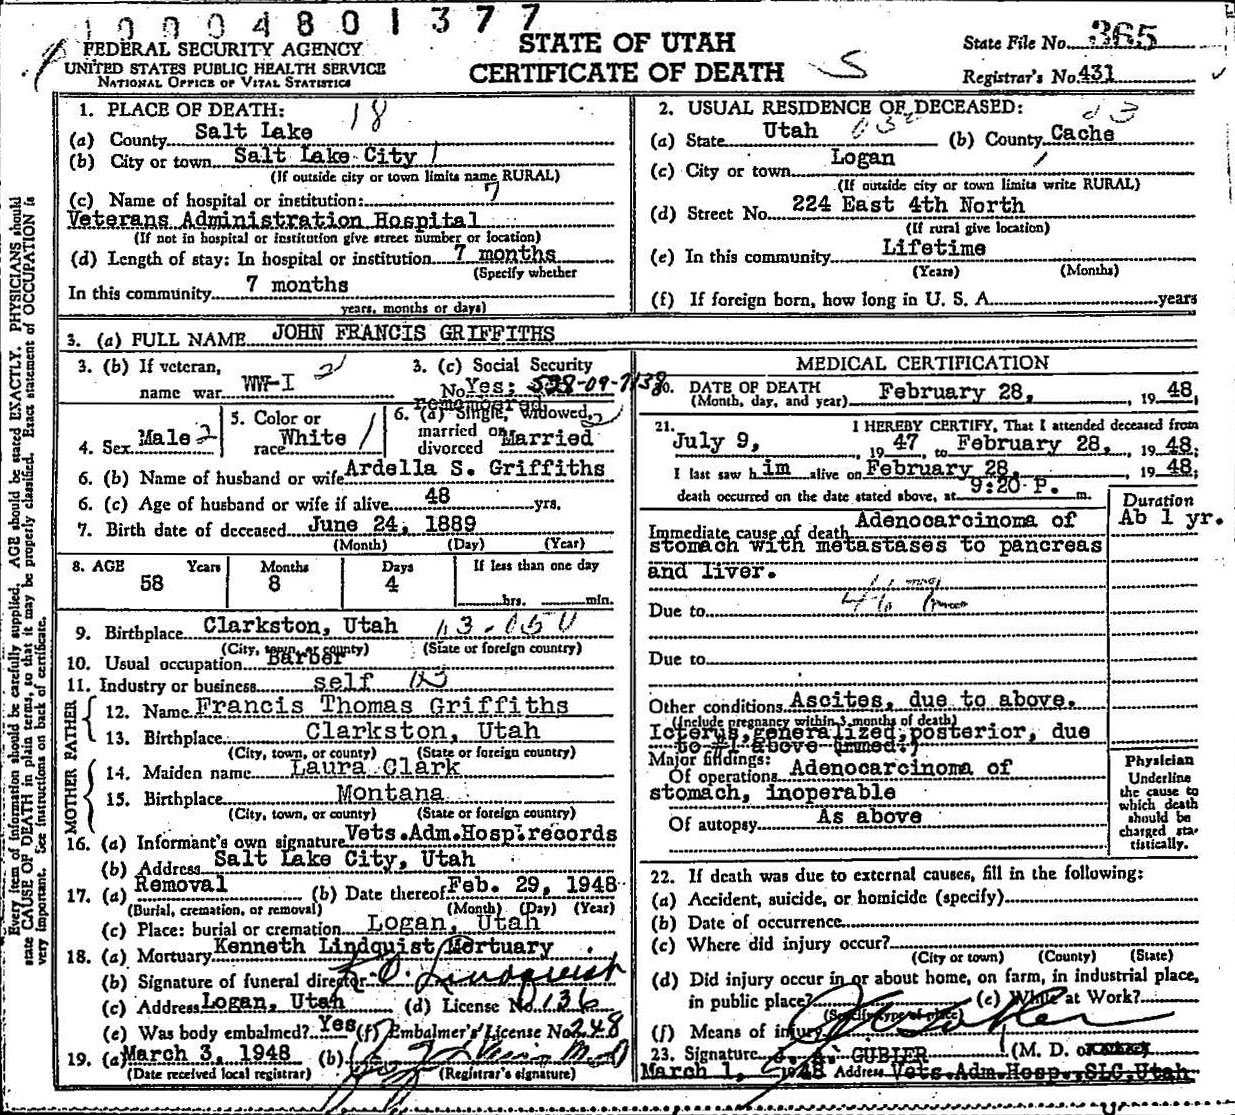 1 0 0 0 4 8 0 1 3 7 7
FEDERAL SECURITY AGENCY
UNITED STATES PUBLIC HEALTH SERVICE
NATIONAL OFFICE OF VITAL STATISTICS
STATE OF UTAH
CERTIFICATE OF DEATH
State File No. 365
Registrar's No. 431
Every item of information should be carefully supplied. AGE should be stated EXACTLY. PHYSICIANS should
state CAUSE OF DEATH in plain terms, so that it may be properly classified. Exact statement of OCCUPATION is
very important. See instructions on back of certificate.
1. PLACE OF DEATH: 18
(a) County Salt Lake
(b) City or town Salt Lake City 1
(If outside city or town limits name RURAL)
(c) Name of hospital or institution: 7
Veterans Administration Hospital
(If not in hospital or institution give street number or location)
(d) Length of stay: In hospital or institution 7 months
(Specify whether
In this community 7 months
years, months or days)
2. USUAL RESIDENCE OF DECEASED:
(a) State Utah (b) County Cache
(c) City or town Logan
(If outside city or town limits write RURAL)
(d) Street No. 224 East 4th North
(If rural give location)
(e) In this community Lifetime
(Years) (Months)
(f) If foreign born, how long in U. S. A. years
3. (a) FULL NAME JOHN FRANCIS GRIFFITHS
3. (b) If veteran,
name war WW-I 2
3. (c) Social Security
No. Yes; 528-09-7138
remembered
4. Sex Male 2
5. Color or
race White 1
6. (a) Single, widowed,
married or
divorced Married
6. (b) Name of husband or wife Ardella S. Griffiths
6. (c) Age of husband or wife if alive 48 yrs.
7. Birth date of deceased June 24, 1889
(Month) (Day) (Year)
8. AGE Years Months Days If less than one day
58 8 4 hrs. min.
9. Birthplace Clarkston, Utah
(City, town, or county) (State or foreign country)
10. Usual occupation Barber
11. Industry or business self
FATHER
12. Name Francis Thomas Griffiths
13. Birthplace Clarkston, Utah
(City, town, or county) (State or foreign country)
MOTHER
14. Maiden name Laura Clark
15. Birthplace Montana
(City, town, or county) (State or foreign country)
16. (a) Informant's own signature Vets.Adm.Hosp.records
(b) Address Salt Lake City, Utah
17. (a) Removal (b) Date thereof Feb. 29, 1948
(Burial, cremation, or removal) (Month) (Day) (Year)
(c) Place: burial or cremation Logan, Utah
18. (a) Mortuary Kenneth Lindquist Mortuary
(b) Signature of funeral director K. O. Lindquist
(c) Address Logan, Utah (d) License No. 136
(e) Was body embalmed? Yes (f) Embalmer's License No. 248
19. (a) March 3, 1948 (b)
(Date received local registrar) (Registrar's signature)
MEDICAL CERTIFICATION
20. DATE OF DEATH
(Month, day, and year) February 28, 19 48
21. I HEREBY CERTIFY, That I attended deceased from
July 9, 19 47 to February 28, 19 48;
I last saw h im alive on February 28, 19 48;
death occurred on the date stated above, at 9:20 P. m.
Duration
Immediate cause of death Adenocarcinoma of Ab 1 yr.
stomach with metastases to pancreas
and liver.
Due to
Due to
Other conditions Ascites, due to above.
(Include pregnancy within 3 months of death)
Icterus, generalized, posterior, due
to #1 above (immed.)
Major findings:
Of operations Adenocarcinoma of
stomach, inoperable
Of autopsy As above
Physician
Underline
the cause to
which death
should be
charged sta-
tistically.
22. If death was due to external causes, fill in the following:
(a) Accident, suicide, or homicide (specify)
(b) Date of occurrence
(c) Where did injury occur?
(City or town) (County) (State)
(d) Did injury occur in or about home, on farm, in industrial place,
in public place? (e) While at Work?
(Specify type of place)
(f) Means of injury
23. Signature J. A. GUBLER (M. D. or
March 1, 1948 Address Vets.Adm.Hosp.,SLC,Utah